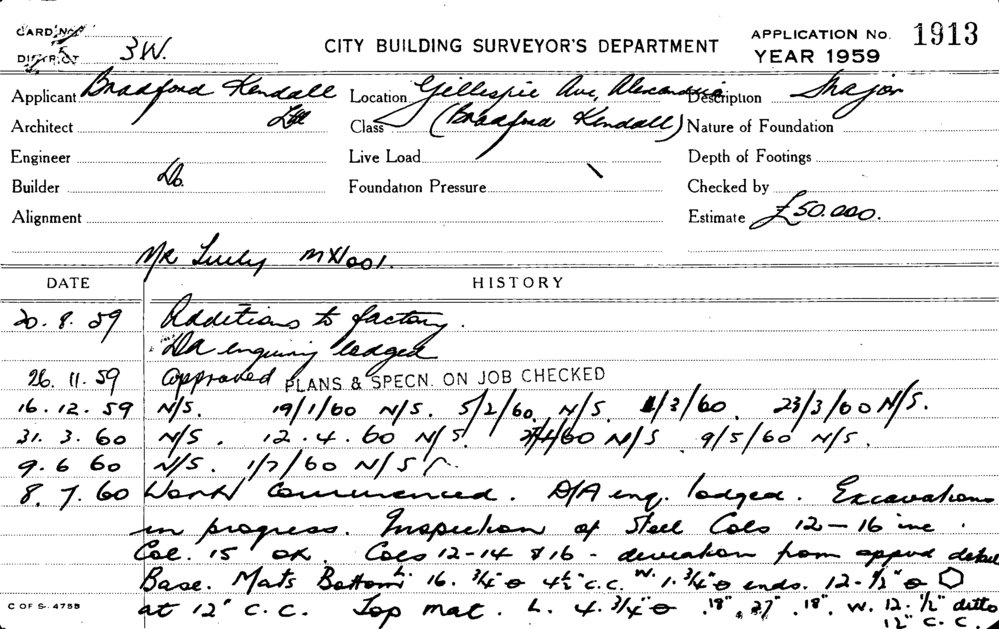 CARD No.
DISTRICT 3W.
CITY BUILDING SURVEYOR'S DEPARTMENT
APPLICATION No. 1913
YEAR 1959
Applicant Bradford Kendall Ltd
Location Gillespie Ave, Alexandria
Description Major
Architect
Class (Bradford Kendall)
Nature of Foundation
Engineer
Live Load
Depth of Footings
Builder Do.
Foundation Pressure
Checked by
Alignment
Estimate £50.000.
Mr MX1001.
DATE HISTORY
20. 8. 59 Additions to factory.
DA enquiry lodged
26. 11. 59 approved PLANS & SPECN. ON JOB CHECKED
16. 12. 59 N/S. 19/1/60 N/S. 5/2/60. N/S. 1/3/60. 23/3/60 N/S.
31. 3. 60 N/S. 12. 4. 60 N/S. /60 N/S 9/5/60 N/S.
9. 6 60 N/S. 1/7/60 N/S
8. 7. 60 Work commenced. D/A enq. lodged. Excavations
in progress. Inspection of Steel Cols 12 - 16 inc.
Col. 15 OK. Cols 12-14 & 16 - deviation from appvd detail
Base. Mats Bottom L. 16. 3/4" ø 4½" c.c. W. 1. 3/4" ø ends. 12- ½" ø
at 12" C.C. Top mat. L. 4. 3/4" ø 18", 27", 18". W. 12. ½" ditto
12" C. C.
C OF S. 475B